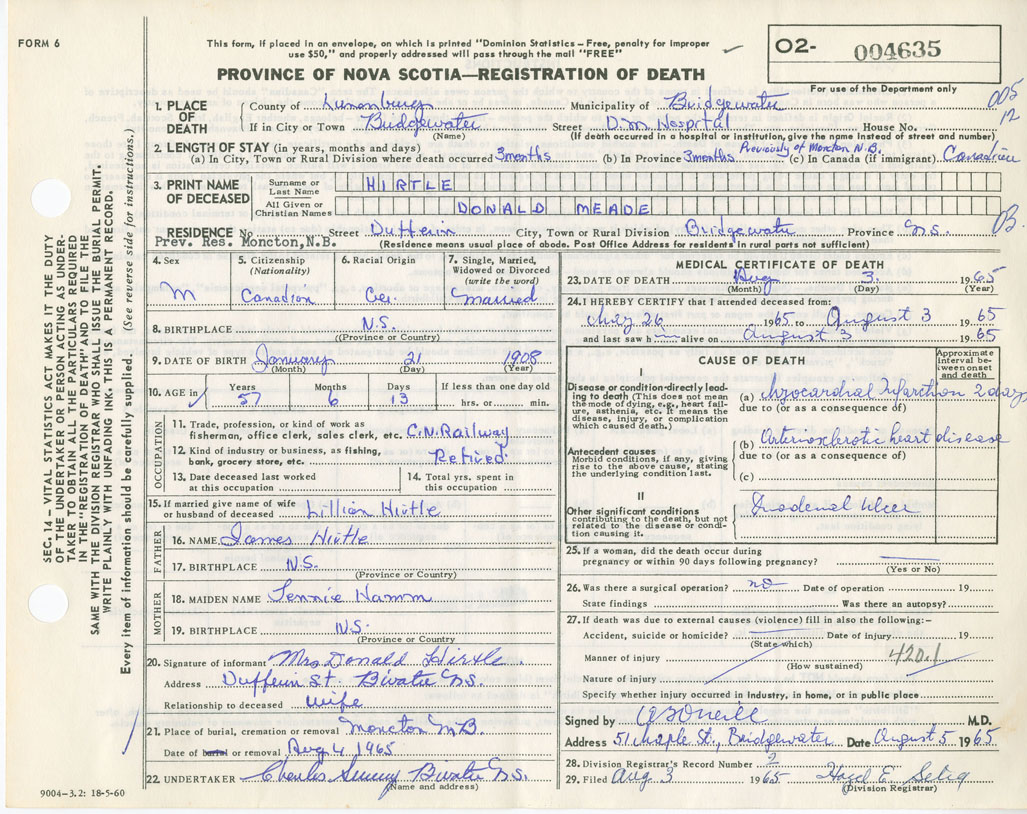 FORM 6
This form, if placed in an envelope, on which is printed "Dominion Statistics – Free, penalty for improper
use $50," and properly addressed will pass through the mail "FREE"
02- 004635
PROVINCE OF NOVA SCOTIA—REGISTRATION OF DEATH
For use of the Department only
005
12
1. PLACE OF DEATH
County of Lunenburg Municipality of Bridgewater
If in City or Town Bridgewater Street D.M. Hospital House No.
(Name) (If death occurred in a hospital or institution, give the name instead of street and number)
2. LENGTH OF STAY (in years, months and days) Previously of Moncton N.B.
(a) In City, Town or Rural Division where death occurred 3 months (b) In Province 3 months (c) In Canada (if immigrant) Canadian
3. PRINT NAME OF DECEASED
Surname or Last Name HIRTLE
All Given or Christian Names DONALD MEADE
RESIDENCE No Street Dufferin City, Town or Rural Division Bridgewater Province N.S.
B.
Prev. Res. Moncton, N.B. (Residence means usual place of abode. Post Office Address for residents in rural parts not sufficient)
4. Sex M
5. Citizenship (Nationality) Canadian
6. Racial Origin Ger.
7. Single, Married, Widowed or Divorced (write the word) Married
8. BIRTHPLACE N.S.
(Province or Country)
9. DATE OF BIRTH January 21 1908
(Month) (Day) (Year)
10. AGE in Years 57 Months 6 Days 13 If less than one day old hrs. or min.
OCCUPATION
11. Trade, profession, or kind of work as
fisherman, office clerk, sales clerk, etc. C.N. Railway
12. Kind of industry or business, as fishing,
bank, grocery store, etc. Retired
13. Date deceased last worked at this occupation
14. Total yrs. spent in this occupation
15. If married give name of wife
or husband of deceased Lillian Hirtle
FATHER
16. NAME James Hirtle
17. BIRTHPLACE N.S.
(Province or Country)
MOTHER
18. MAIDEN NAME Jennie Hamm
19. BIRTHPLACE N.S.
(Province or Country
20. Signature of informant Mrs Donald Hirtle
Address Dufferin St. B'water N.S.
Relationship to deceased wife
21. Place of burial, cremation or removal Moncton N.B.
Date of burial or removal Aug 4 1965
22. UNDERTAKER Charles B'water N.S.
(Name and address)
9004-3.2: 18-5-60
MEDICAL CERTIFICATE OF DEATH
23. DATE OF DEATH Aug 3. 1965
(Month) (Day) (Year)
24. I HEREBY CERTIFY that I attended deceased from:
May 26 1965 to August 3 1965
and last saw h alive on August 3 1965
CAUSE OF DEATH
Approximate interval between onset and death
I
Disease or condition-directly leading to death (This does not mean the mode of dying, e.g., heart failure, asthenia, etc. It means the disease, injury, or complication which caused death.)
(a) Myocardial Infarction 2 days
due to (or as a consequence of)
Antecedent causes
Morbid conditions, if any, giving rise to the above cause, stating the underlying condition last.
(b) Arteriosclerotic heart disease
due to (or as a consequence of)
(c)
II
Other significant conditions
contributing to the death, but not related to the disease or condition causing it.
Duodenal Ulcer
25. If a woman, did the death occur during
pregnancy or within 90 days following pregnancy?
(Yes or No)
26. Was there a surgical operation? no Date of operation 19
State findings Was there an autopsy?
27. If death was due to external causes (violence) fill in also the following:-
Accident, suicide or homicide? Date of injury 19
(State which)
Manner of injury 420.1
(How sustained)
Nature of injury
Specify whether injury occurred in industry, in home, or in public place
Signed by O'Neill M.D.
Address 51 Maple St., Bridgewater Date August 5 1965
28. Division Registrar's Record Number 2
29. Filed Aug 3 1965 Hazel E.
(Division Registrar)
SEC. 14 – VITAL STATISTICS ACT MAKES IT THE DUTY
OF THE UNDERTAKER OR PERSON ACTING AS UNDER-
TAKER TO OBTAIN ALL THE PARTICULARS REQUIRED
IN THE "REGISTRATION OF DEATH" AND TO FILE THE
SAME WITH THE DIVISION REGISTRAR WHO SHALL ISSUE THE BURIAL PERMIT.
WRITE PLAINLY WITH UNFADING INK. THIS IS A PERMANENT RECORD.
Every item of information should be carefully supplied. (See reverse side for instructions.)